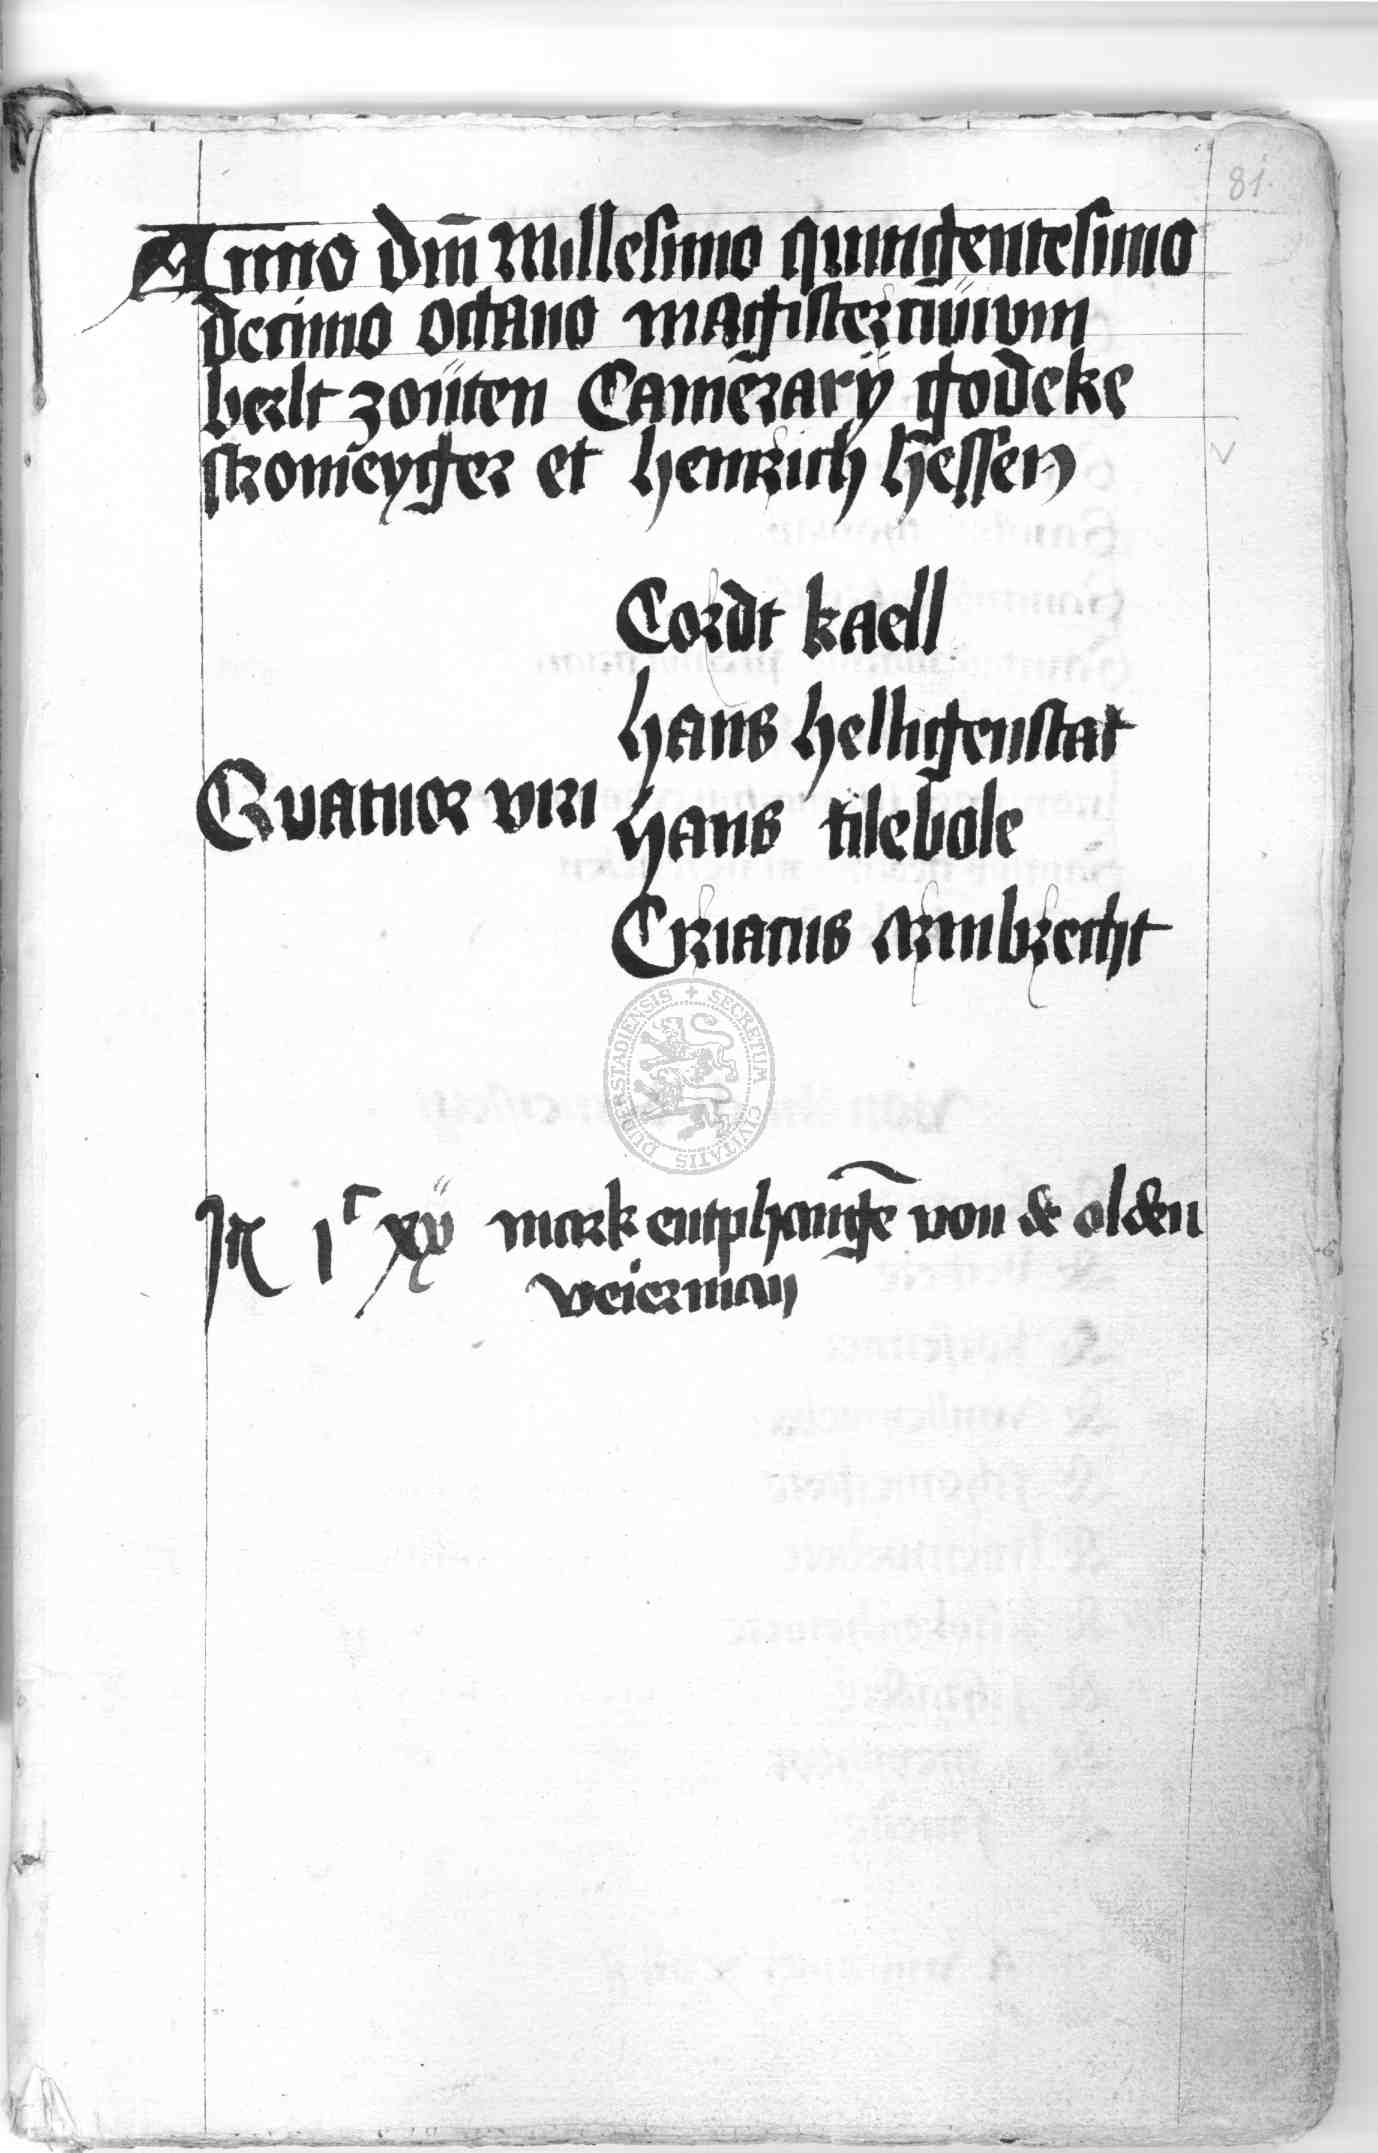 81
Anno dm̄ Millesimo quingentesimo
decimo octavo magistercivium
berlt zoűten Camerarij godeke
stromeyger et henrich hessen
Cordt kaell
hans helligenstat
Quatuor viri hans tilebole
Criacus armbrecht
SECRETUM CIVITATIS DUDERSTADIENSIS
It 1c xx mark entphangē von de olden
weierman